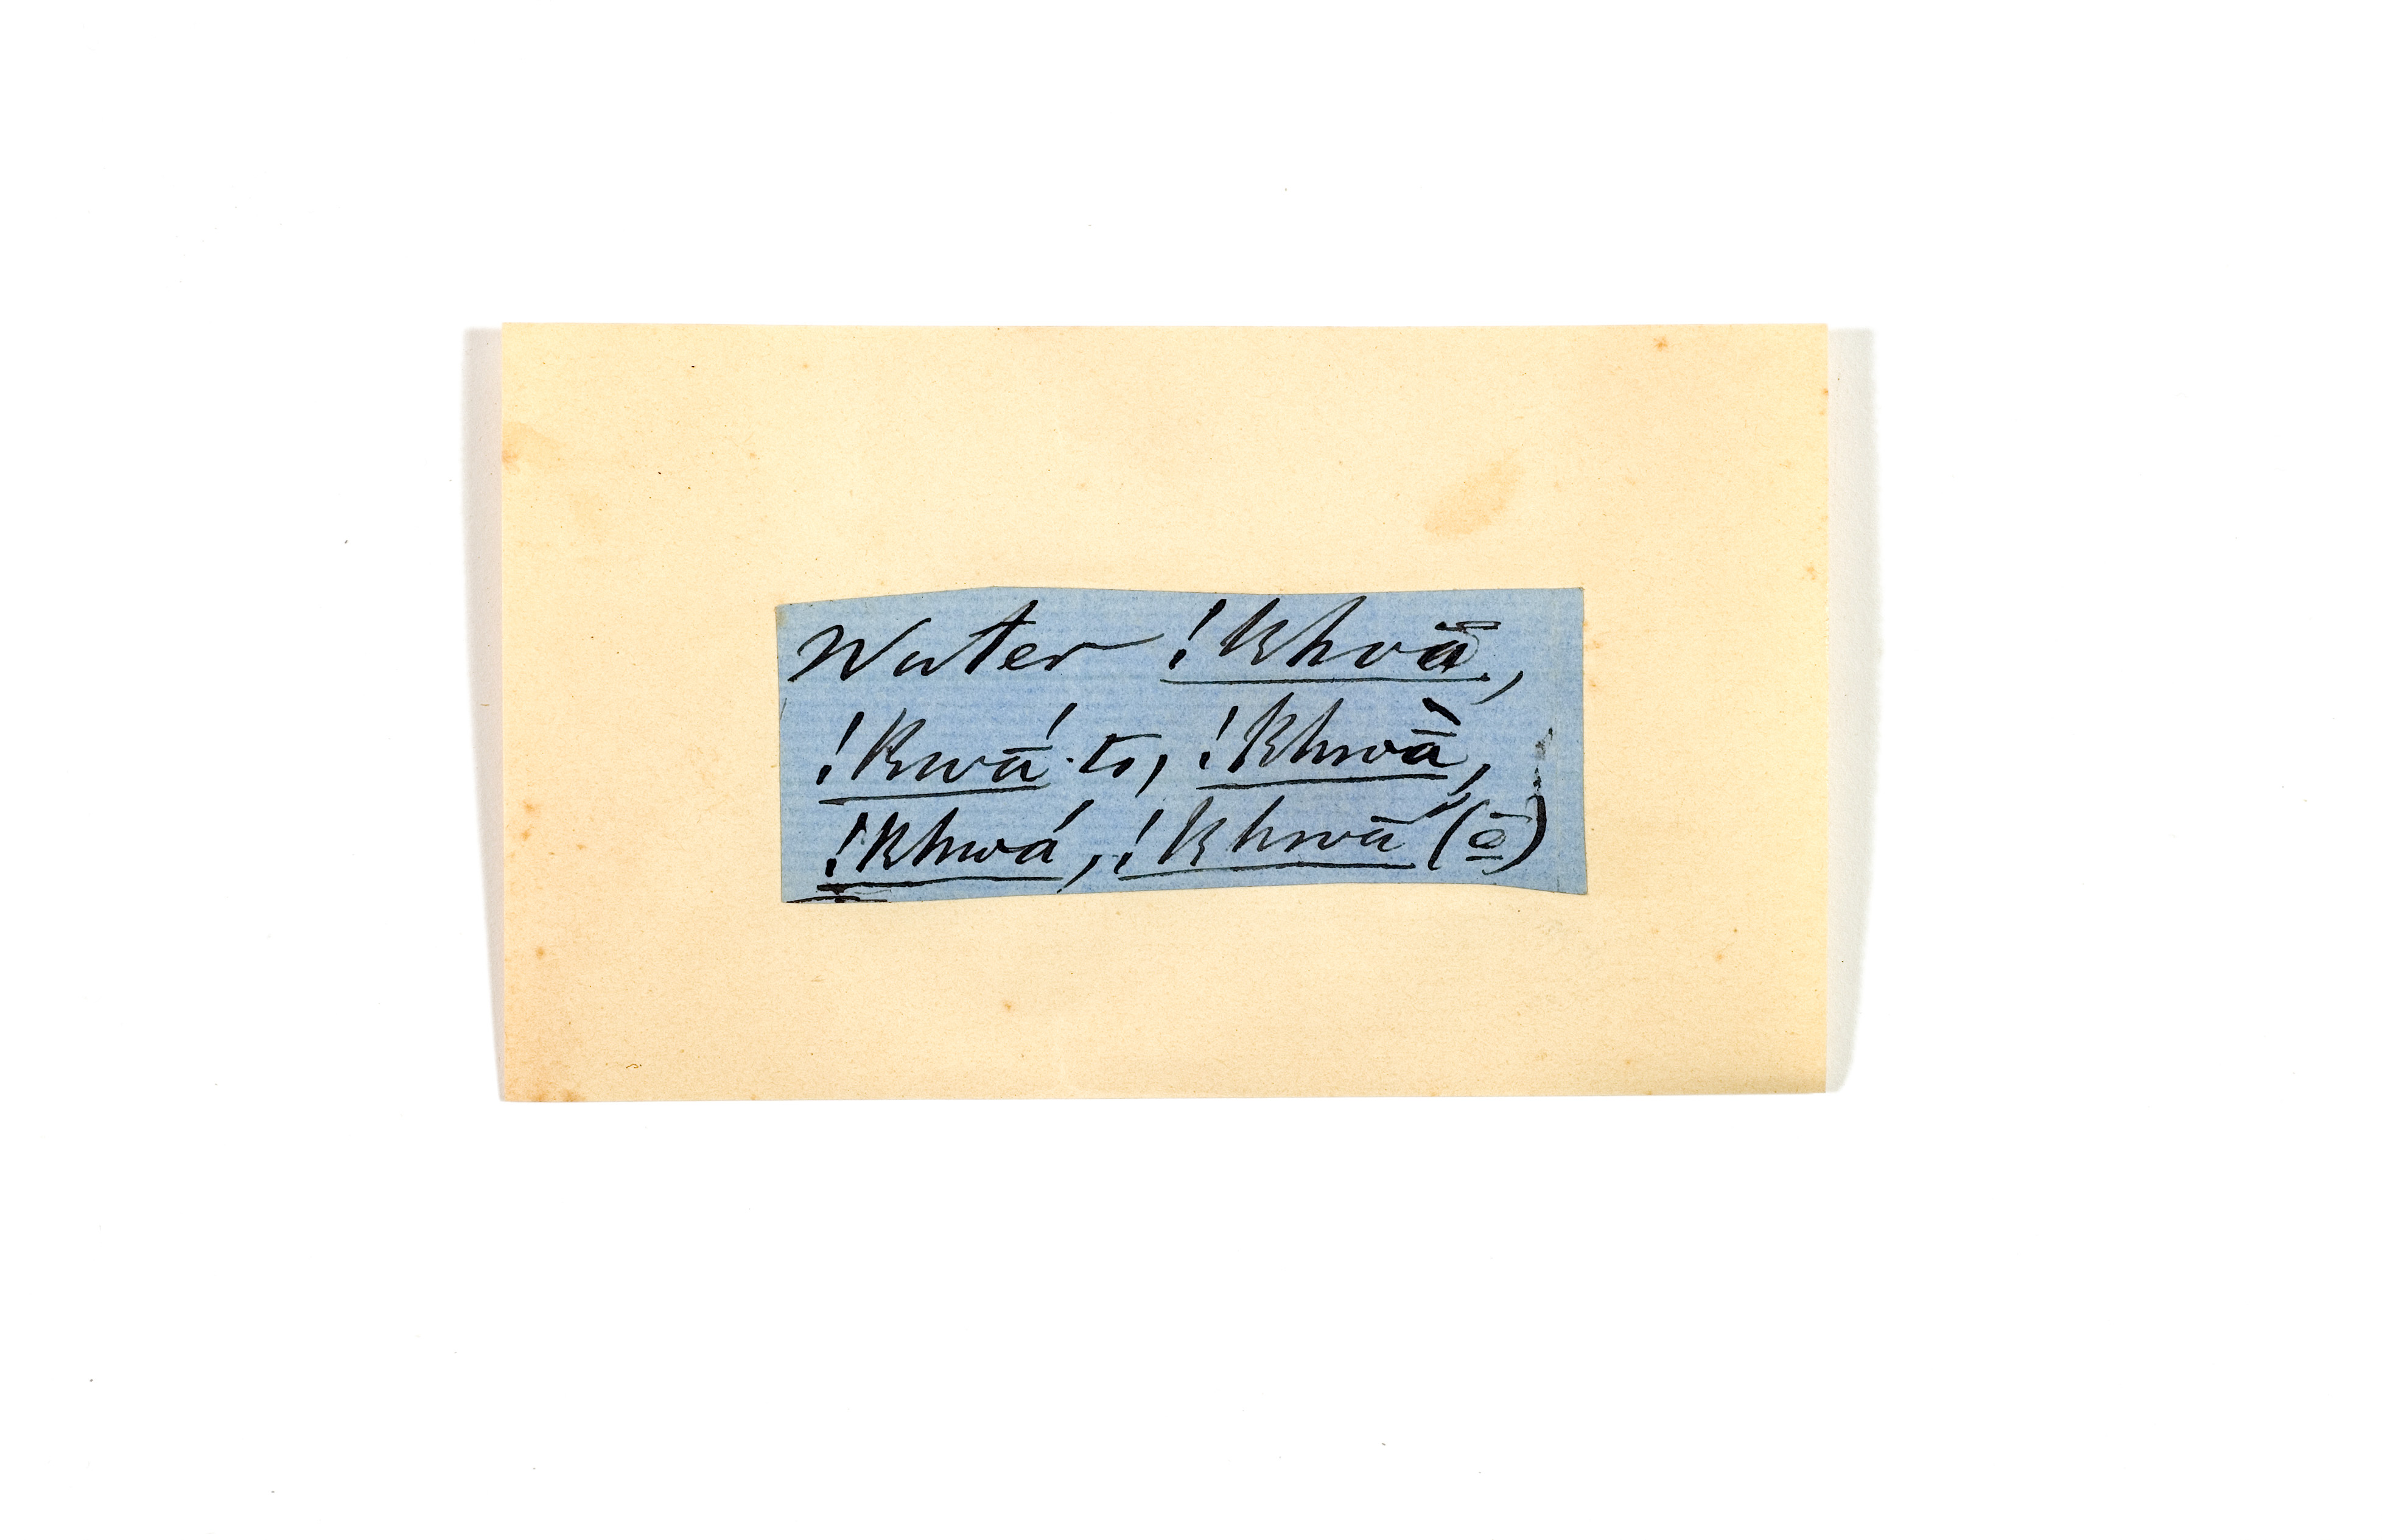 Water !khvā,
!kwā́-to, !khwā̀,
!khwá, !khwā (ā̱)